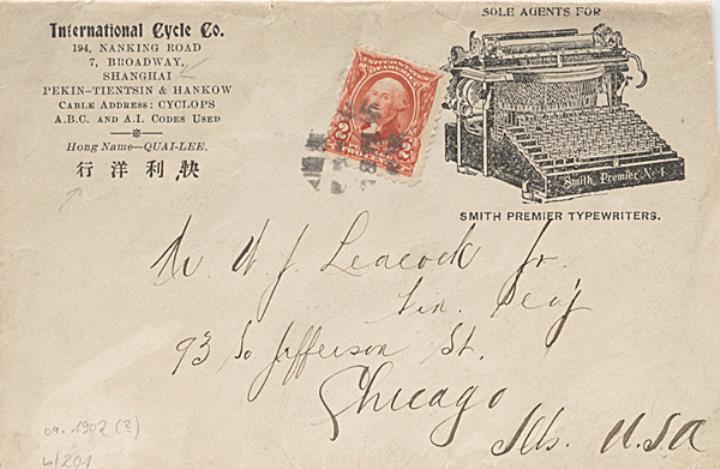 International Cycle Co.
194, NANKING ROAD
7, BROADWAY,
SHANGHAI
PEKIN-TIENTSIN & HANKOW
CABLE ADDRESS: CYCLOPS
A.B.C. AND A.I. CODES USED
Hong Name—QUAI-LEE.
行洋利快
SOLE AGENTS FOR
Smith Premier No 4.
SMITH PREMIER TYPEWRITERS.
2 2
TWO CENTS
W. J. Leacock Jr.
93 So Jefferson St.
Chicago
Ills. U.S.A
ca. 1902 (?)
4/201